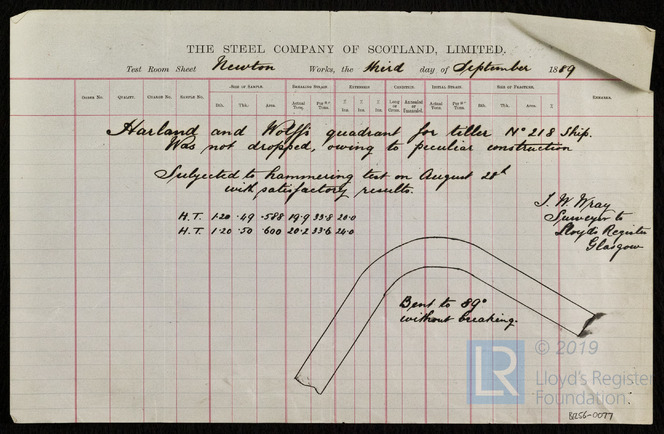 THE STEEL COMPANY OF SCOTLAND, LIMITED.
Test Room Sheet Newton Works, the third day of September 1889
ORDER No. QUALITY. CHARGE No. SAMPLE No. SIZE OF SAMPLE. BREAKING STRAIN. EXTENSION CONDITION. INITIAL STRAIN. SIZE OF FRACTURE. REMARKS.
Bth. Thk. Area. Actual Tons. Per □" Tons. % Ins. % Ins. Long or Cross. Annealed or Unannealed. Actual Tons. Per □" Tons. Bth. Thk. Area. %
Harland and Wolff's quadrant for tiller No 218 Ship.
Was not dropped, owing to peculiar construction
Subjected to hammering test on August 28th
with satisfactory results.
H.T. 1.20 .49 .588 19.9 33.8 20.0
H.T. 1.20 .50 .600 20.2 33.6 24.0
J. W. Wray
Surveyor to
Lloyds Register
Glasgow
Bent to 89°
without breaking.
LR © 2019
Lloyd's Register
Foundation
B256-0077